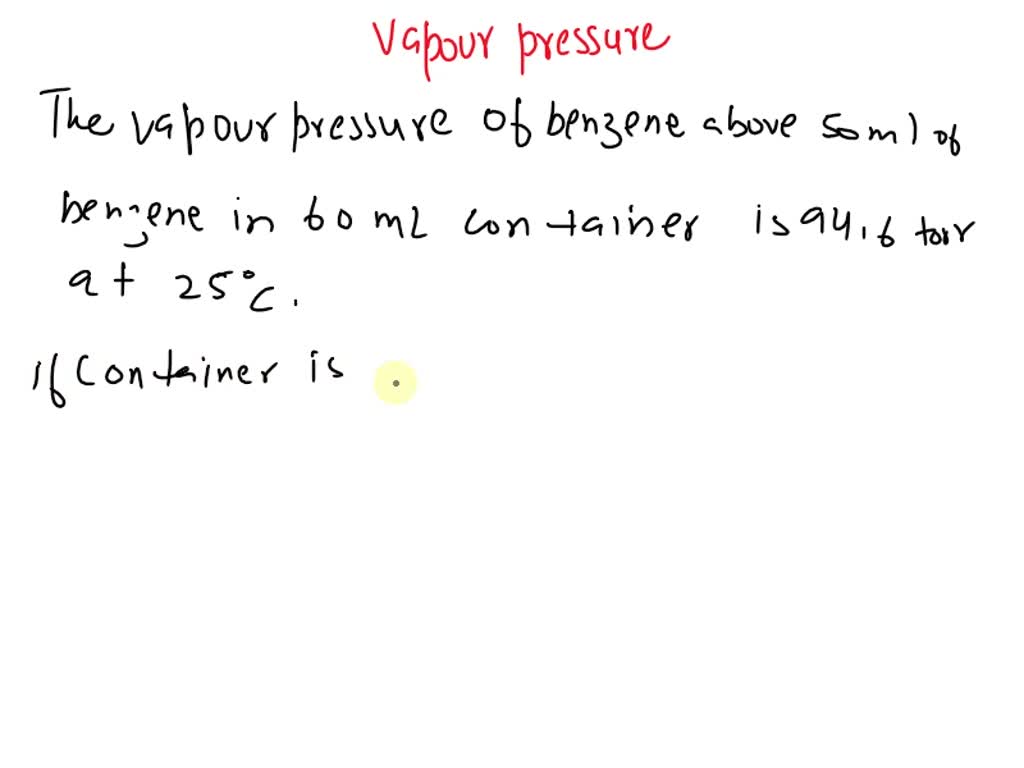 Vapour pressure
The vapour pressure of benzene above 50 ml of
benzene in 60 mL container is 94.6 torr
at 25°C.
if container is